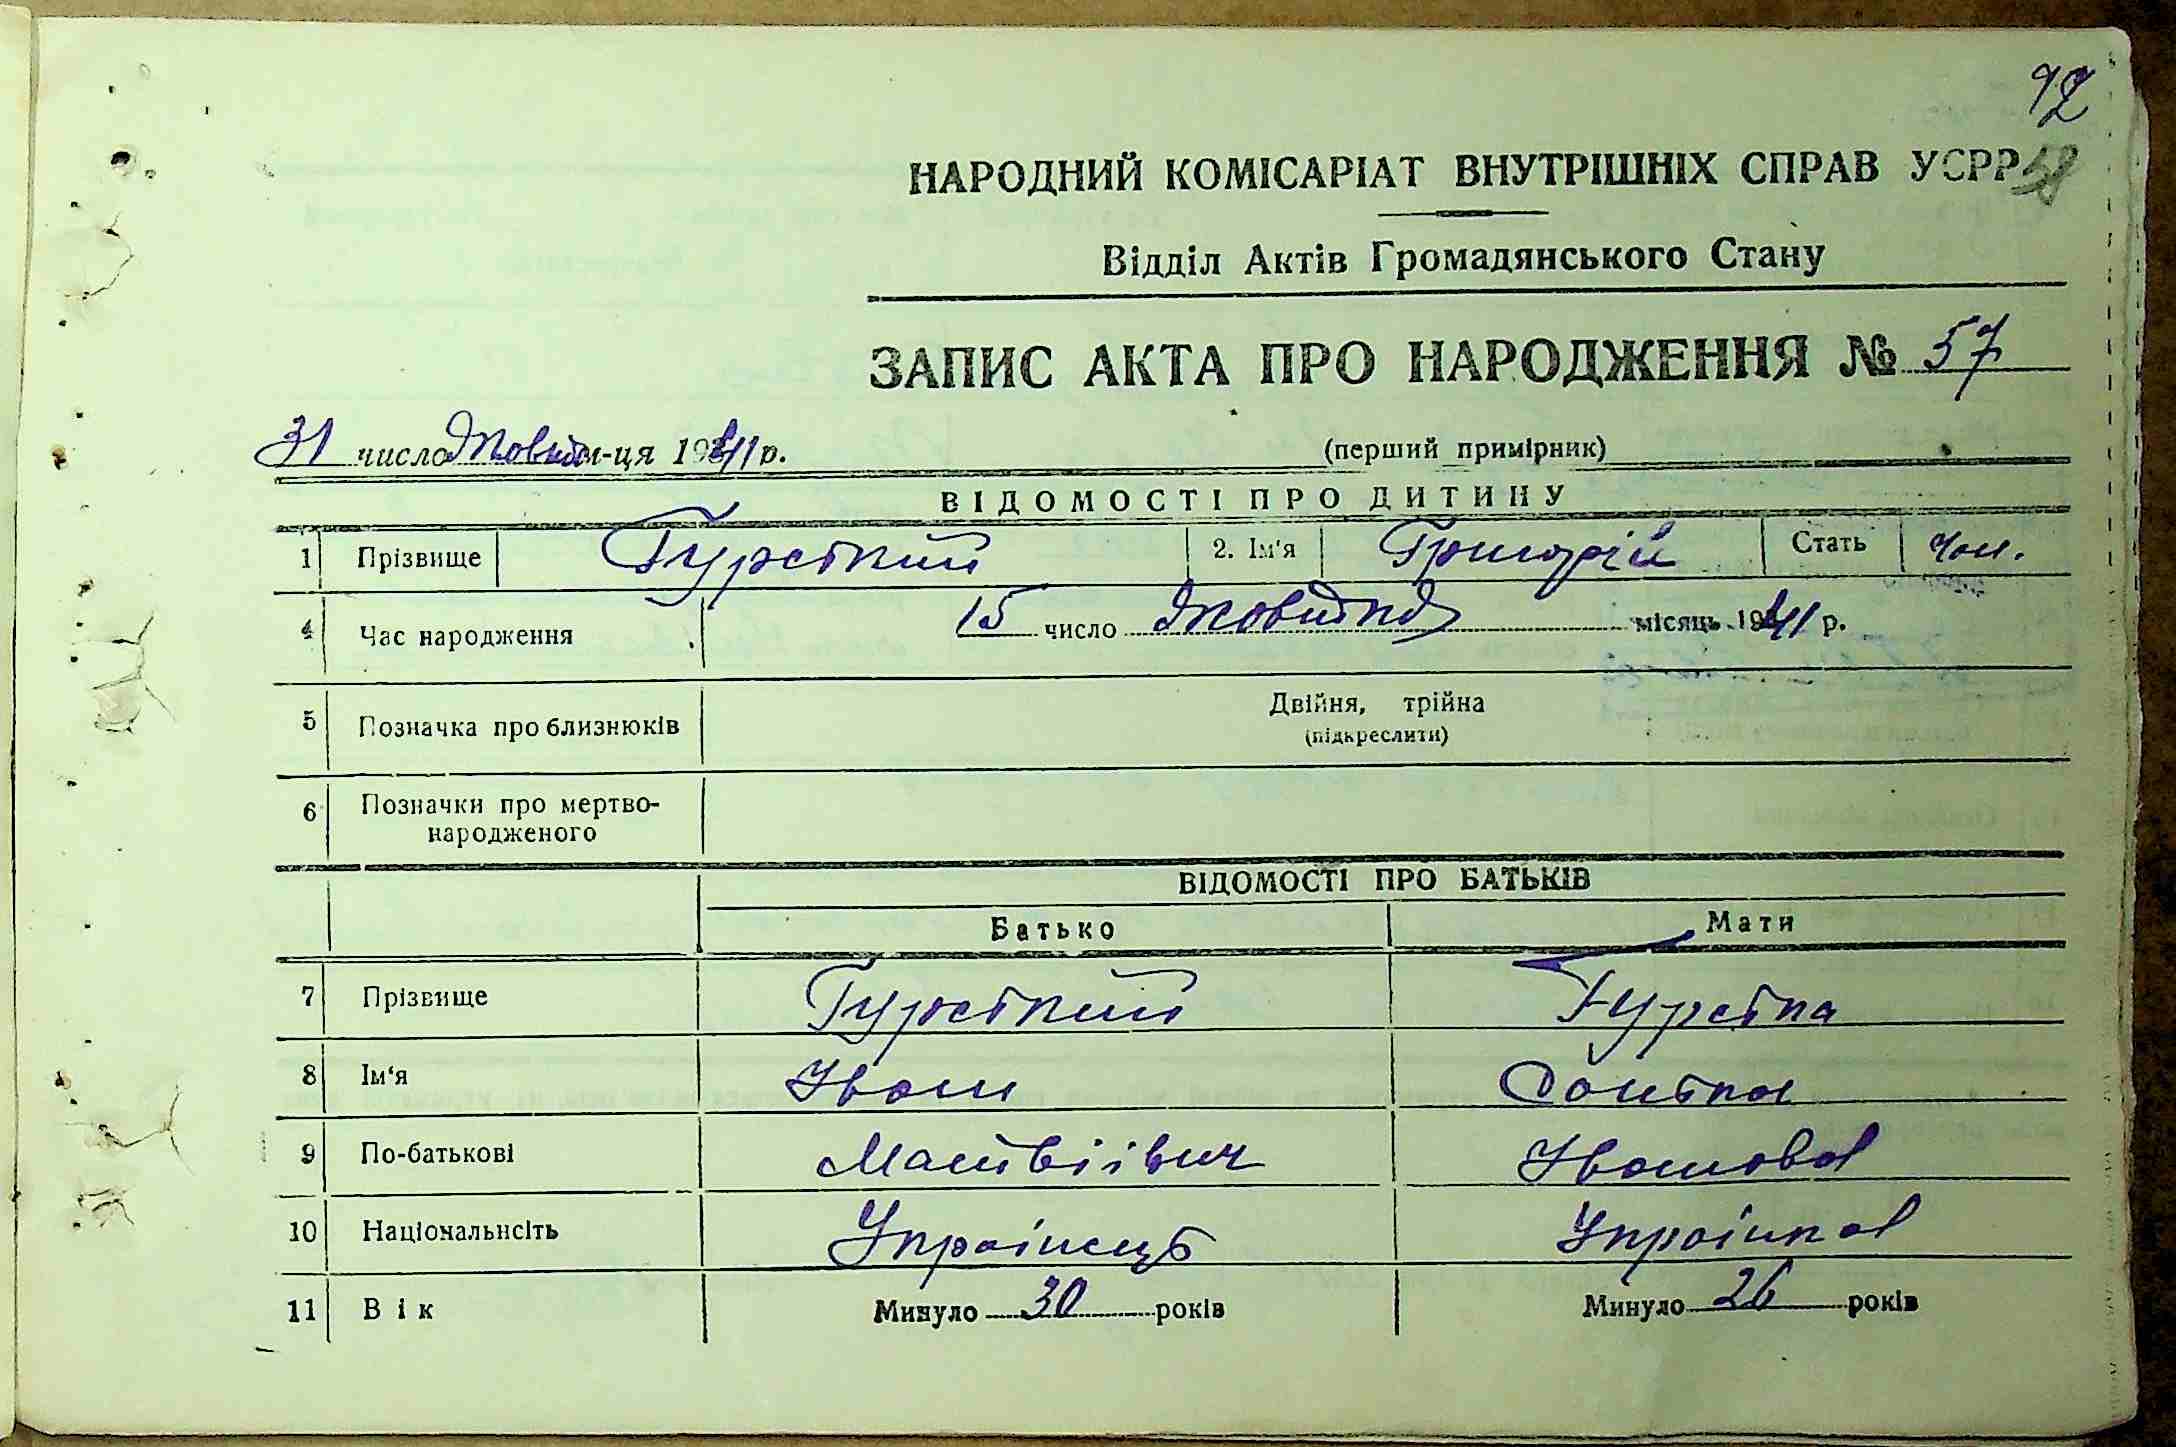 92
58
НАРОДНИЙ КОМІСАРІАТ ВНУТРІШНІХ СПРАВ УСРР
Відділ Актів Громадянського Стану
ЗАПИС АКТА ПРО НАРОДЖЕННЯ № 57
31 число Жовтн м-ця 1941 р.
(перший примірник)
ВІДОМОСТІ ПРО ДИТИНУ
1 Прізвище Гурський 2. Ім'я Григорій Стать чол.
4 Час народження 15 число Жовтня місяць 1941 р.
5 Позначка про близнюків Двійня, трійна
(підкреслити)
6 Позначки про мертво-
народженого
ВІДОМОСТІ ПРО БАТЬКІВ
Батько Мати
7 Прізвище Гурський Гурська
8 Ім'я Іван
9 По-батькові Матвіівич Іванова
10 Національнсіть Українець Українка
11 Вік Минуло 30 років Минуло 26 років